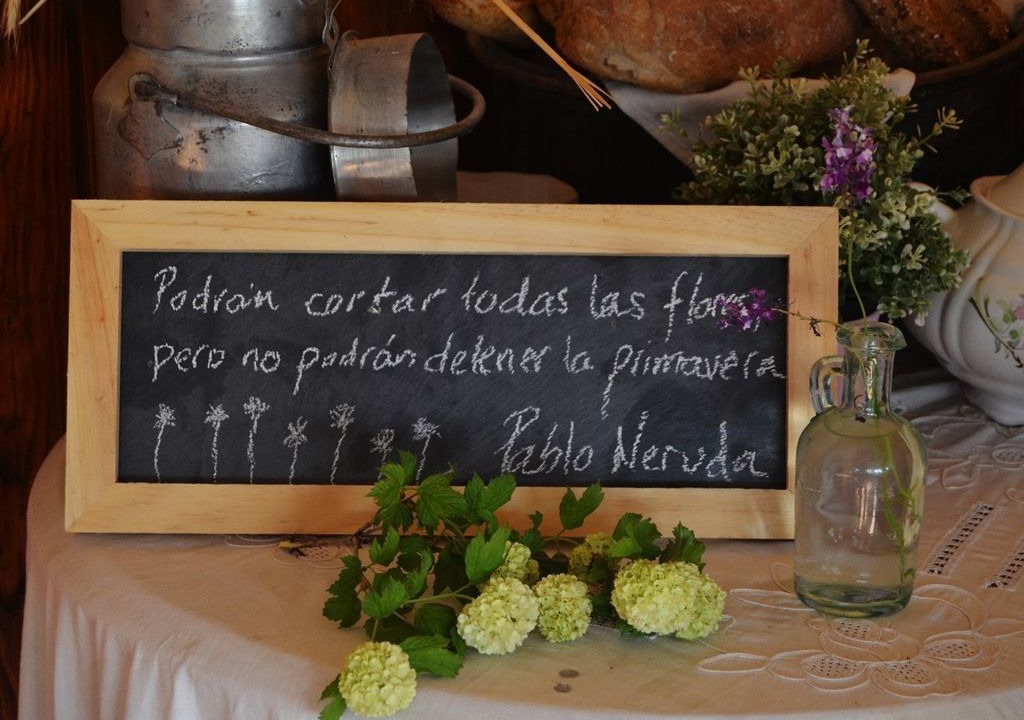 Podrán cortar todas las flores,
pero no podrán detener la primavera
Pablo Neruda